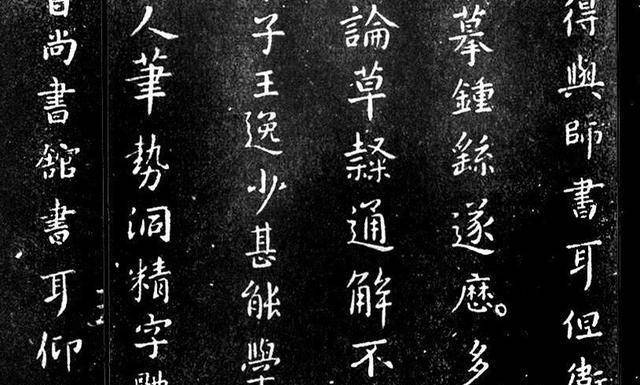 得與師書耳但衛
摹鍾繇遂歷多
論草隸通解不
子王逸少甚能學
人筆勢洞精字
尚書舘書耳仰